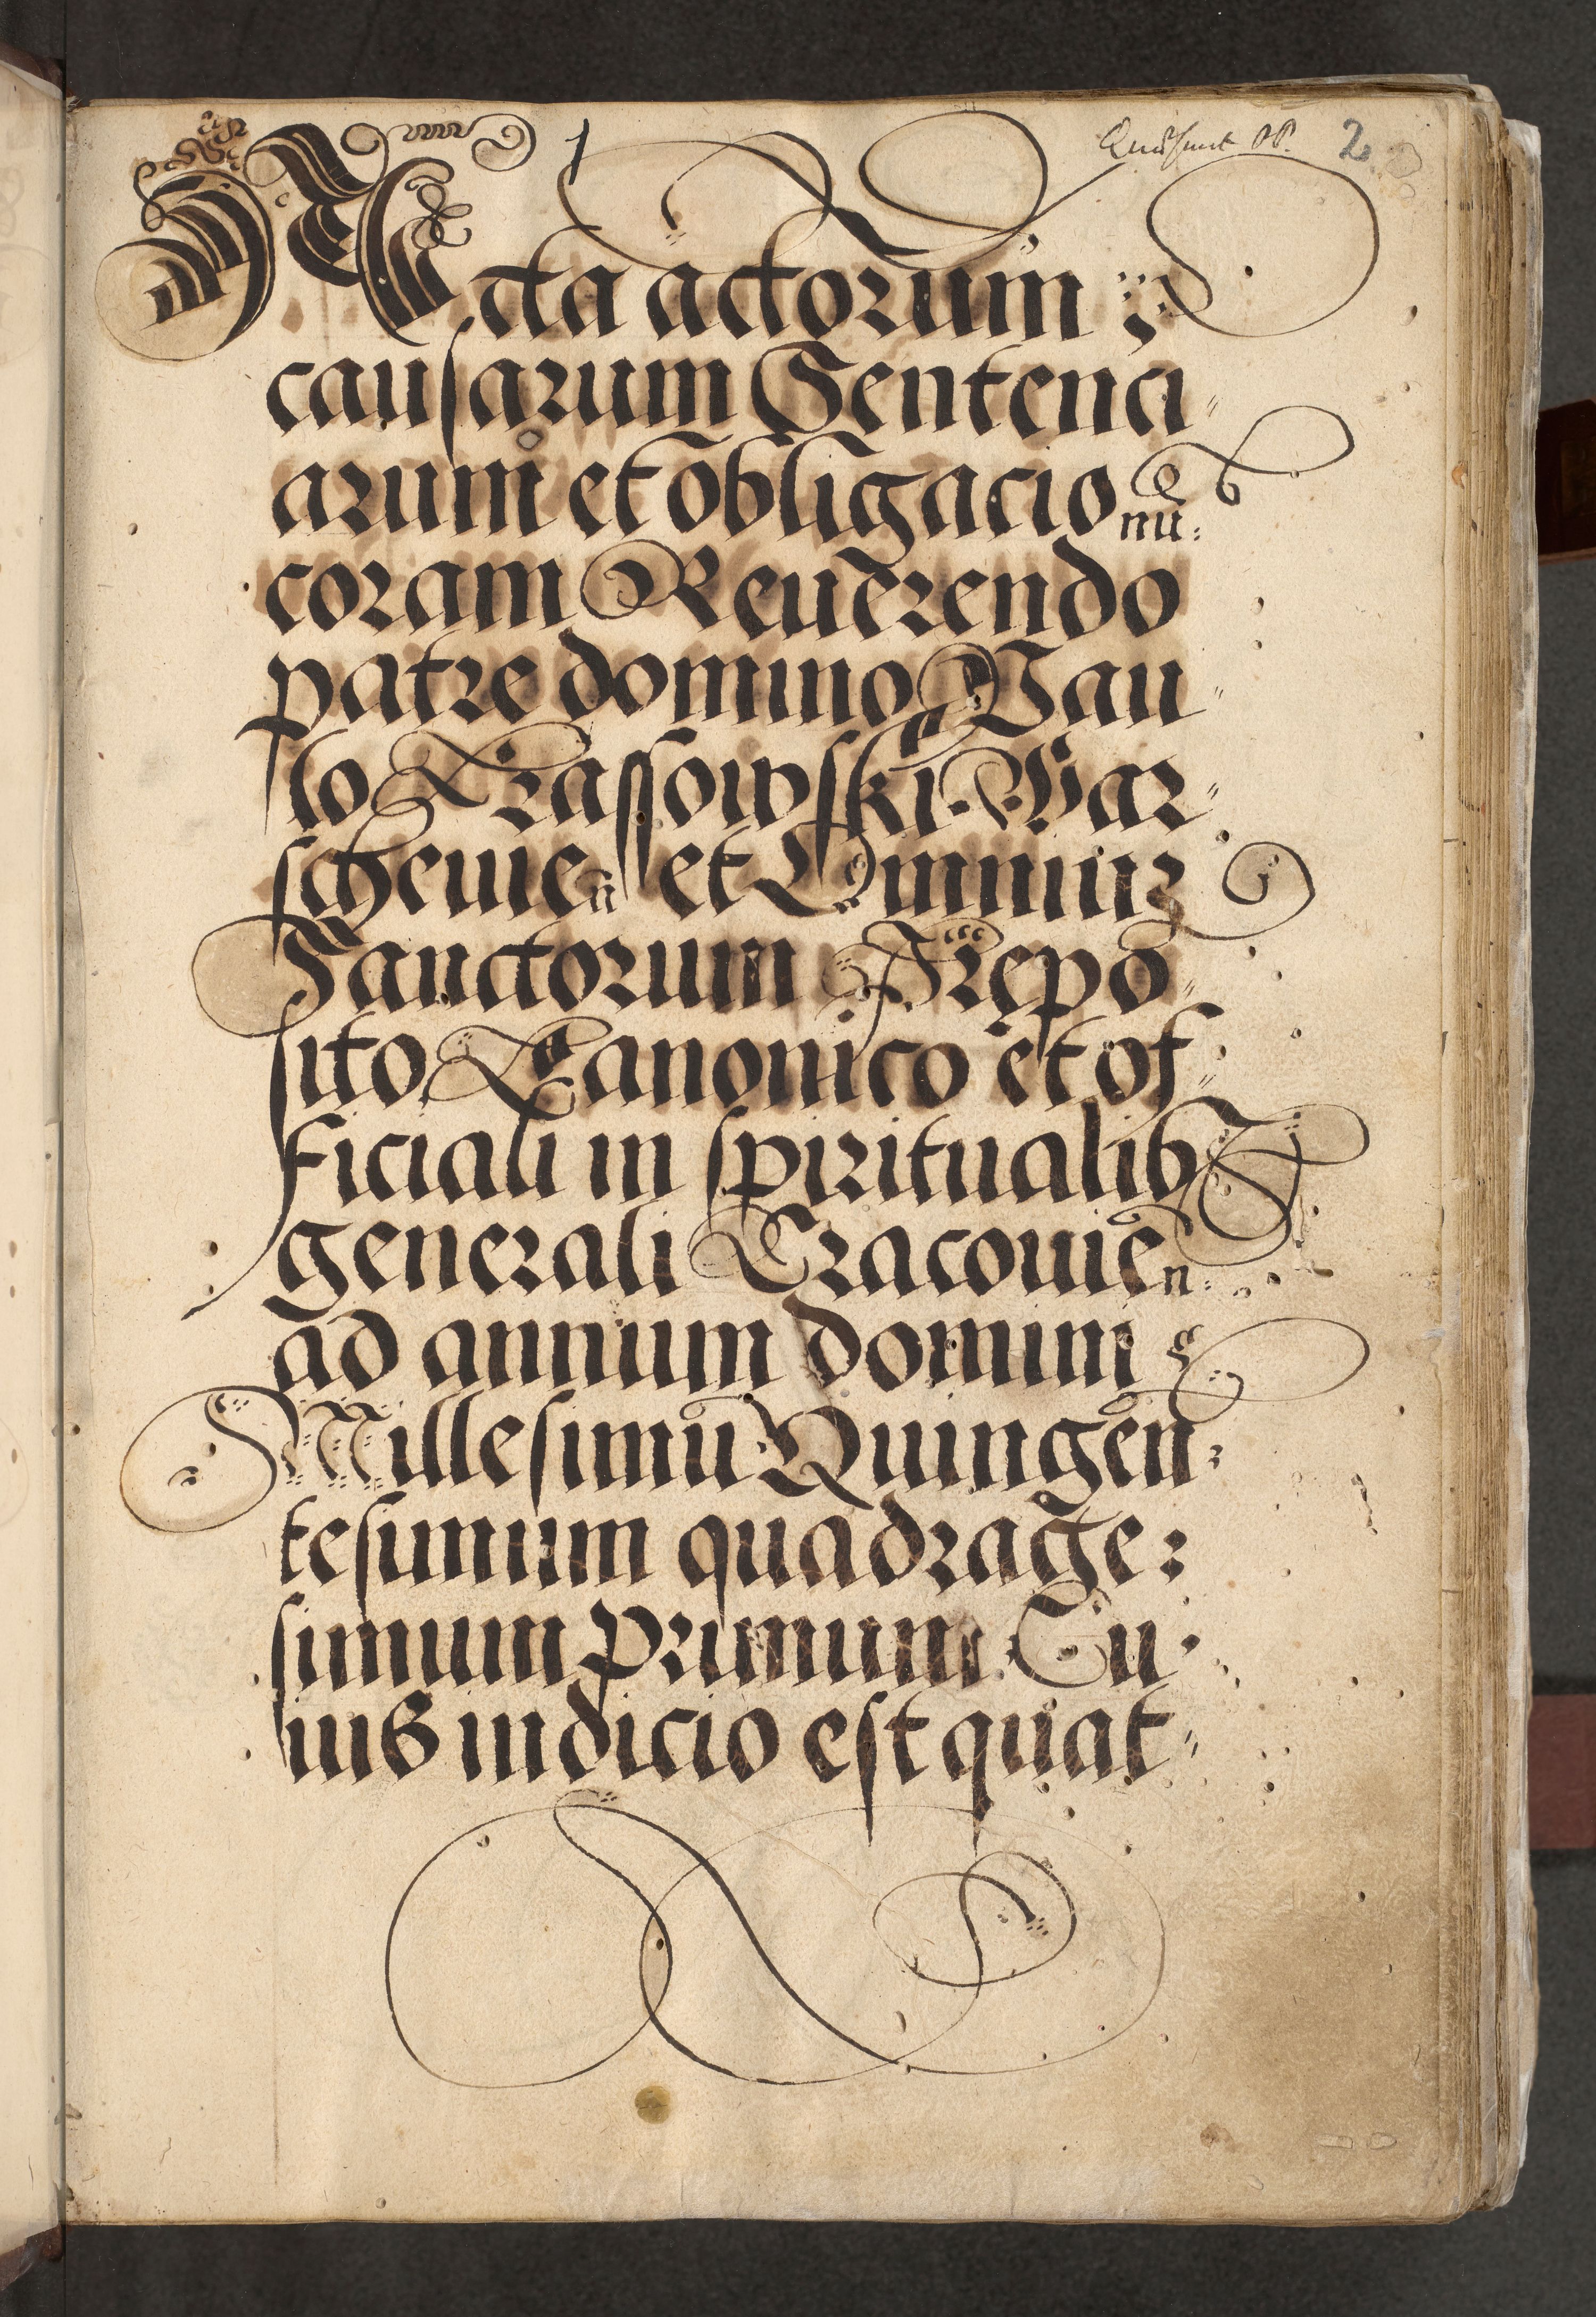 1
2
Acta actorum
causarum Sentenci
arum et obligacionū
coram Reuerendo
patre domino Pau
lo Crassowski. War
scheuieñ et Omniuz
Sanctorum Prępo
sito Canonico et of
ficiali in spiritualib9
generali Cracouień
ad annum domini
Millesimū Quingen
tesimum quadrage
simum primum. Cu
ius indicio est quat